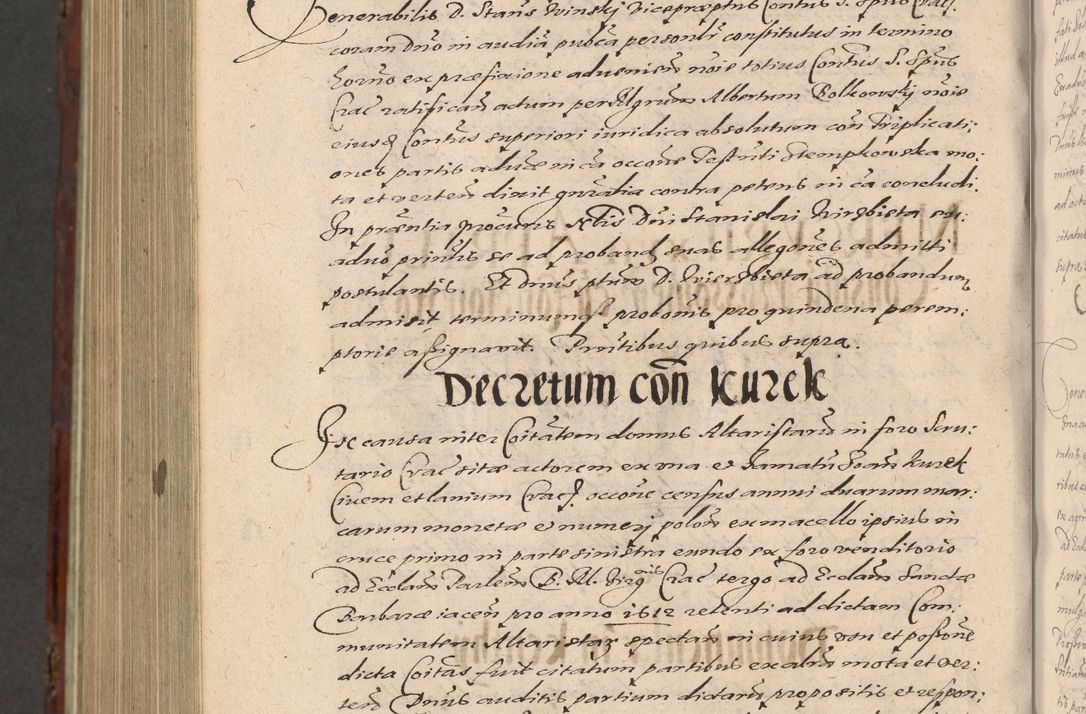 Venerabilis D. Stans Winskj Vicepræptus Contus S. Spus Crac.
coram Dno in audiā pubca personlr constitutus in termino
horno ex præfixione advenien nōie totius Contus S. Spus
Crac ratifican actum per Algrum Albertum Bolkowskj nōie
eiusd Contus superiori iuridica absolutum con triplicati:
ones partis aduæ in ca occone Testīriti Stempkowska mo:
ta et verten dixit gnralia contra petens in ca concludi.
In præntia procuris Nlis Dni Stanislai Wirzbieta eu:
aduo prinlis se ad proband suas allegones admitti
postulantis. Et Dnus ptum D. Wierzbieta ad probandum
admisit terminumq probonis pro quindena perem:
ptorie assignavit. Pntibus quibus supra.
Decretum con Kurek
In causa inter Coitatem domus Altaristaru in foro Scru:
tario Crac sitæ actorem ex una et Famatu Joan Kurek
Civem et lanium Crac. occone census annui duarum mar:
carum monetæ et numerj polon ex macello ipsius in
cruce primo in parte sinistra eundo ex foro venditorio
ad Ecclam Parlem B. M. Virg Crac tergo ad Ecclam Sanctæ
Barbaræ iacen pro anno 1612 retenti ad dictam Com:
munitatem Altaristar spectan in cuius von et possone
dicta Coitas fuit citatum partibus ex alru mota et ver:
ten Dnus auditis partium dictaru propositis et respon: